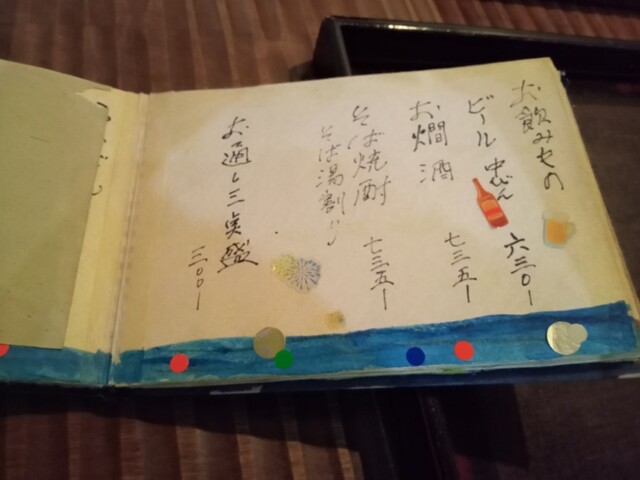 お飲みもの
ビール 中びん 六三〇ー
お燗酒 七三五ー
そば焼酎 七三五ー
そば湯割り
お通し三点盛 三〇〇ー